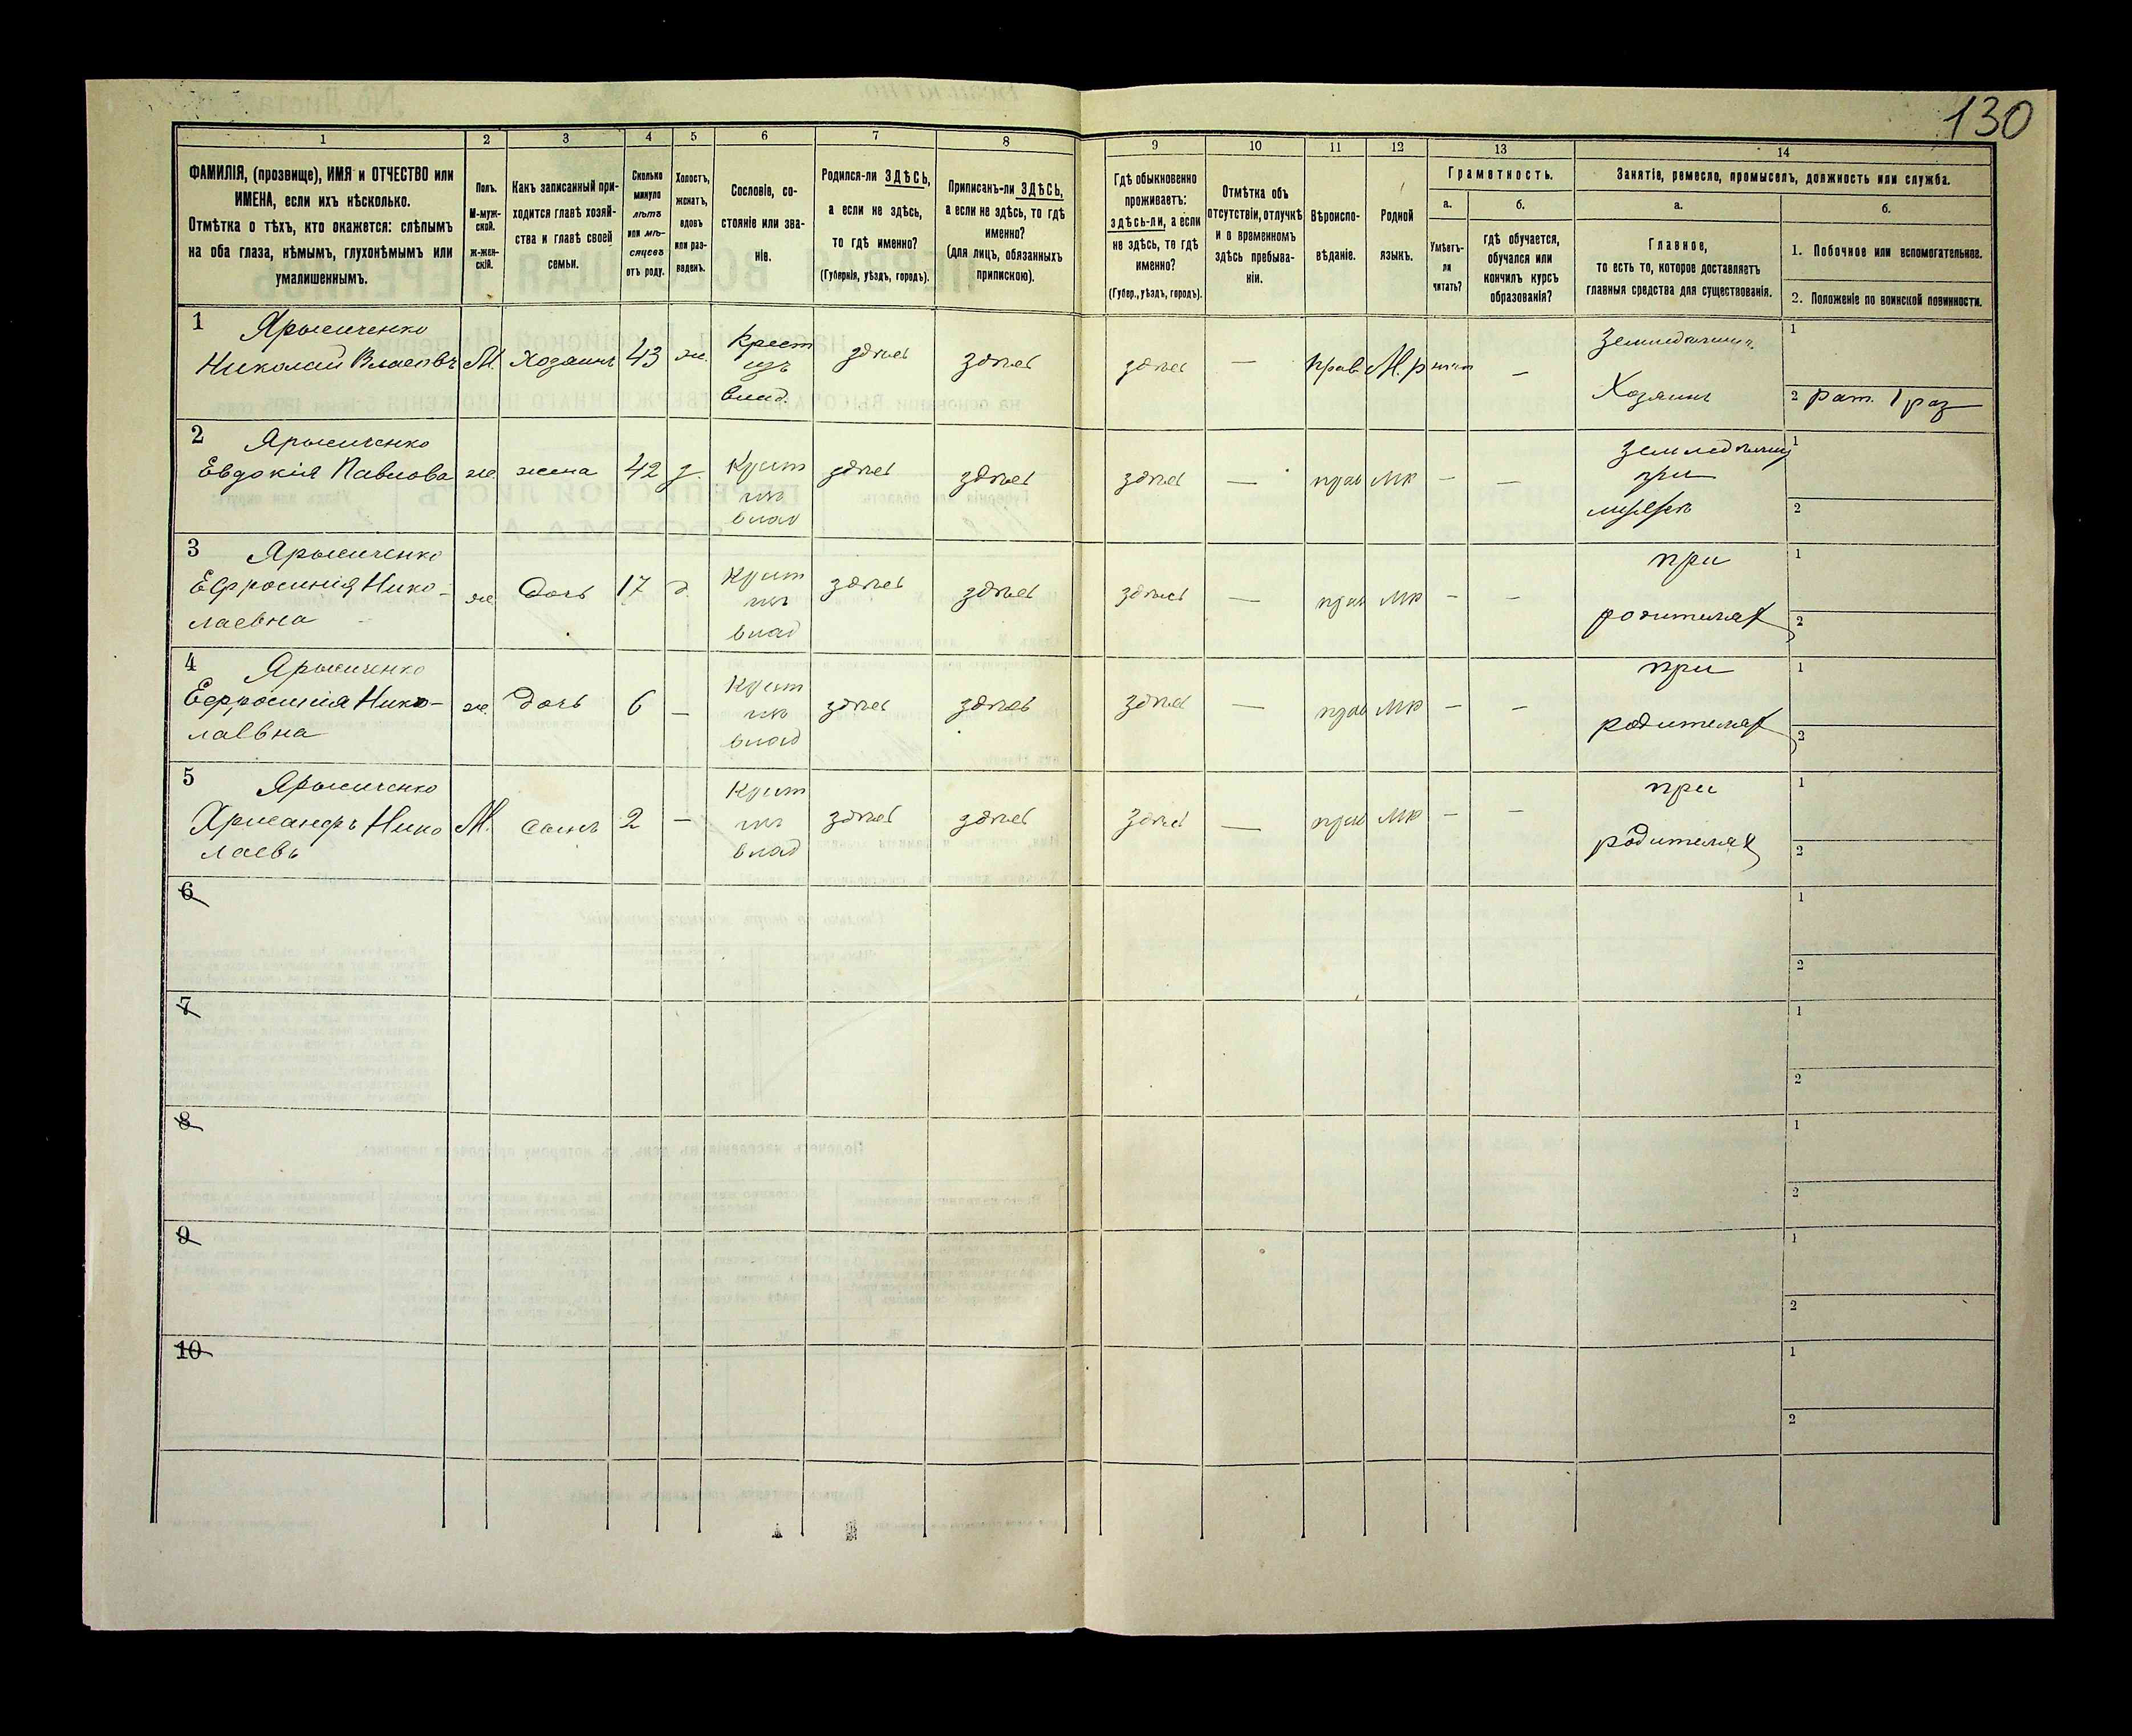 130
1 2 3 4 5 6 7 8 9 10 11 12 13 14
ФАМИЛІЯ, (прозвище), ИМЯ и ОТЧЕСТВО или
ИМЕНА, если ихъ нѣсколько.
Отмѣтка о тѣхъ, кто окажется: слѣпымъ
на оба глаза, нѣмымъ, глухонѣмымъ или
умалишеннымъ.
Полъ.
М-муж-
ской.
ж-жен-
скій.
Какъ записанный при-
ходится главѣ хозяй-
ства и главѣ своей
семьи.
Сколько
минуло
лѣтъ
или мѣ-
сяцевъ
отъ роду.
Холостъ,
женатъ,
вдовъ
или раз-
веденъ.
Сословіе, со-
стояніе или зва-
ніе.
Родился-ли ЗДѢСЬ,
а если не здѣсь,
то гдѣ именно?
(Губернія, уѣздъ, городъ).
Приписанъ-ли ЗДѢСЬ,
а если не здѣсь, то гдѣ
именно?
(для лицъ, обязанныхъ
припискою).
Гдѣ обыкновенно
проживаетъ:
здѣсь-ли, а если
не здѣсь, то гдѣ
именно?
(Губер., уѣздъ, городъ).
Отмѣтка объ
отсутствіи, отлучкѣ
и о временномъ
здѣсь пребыва-
ніи.
Вѣроиспо-
вѣданіе.
Родной
языкъ.
Грамотность.
а.
Умѣетъ-
ли
читать?
б.
гдѣ обучается,
обучался или
кончилъ курсъ
образованія?
Занятіе, ремесло, промыселъ, должность или служба.
а.
Главное,
то есть то, которое доставляетъ
главныя средства для существованія.
б.
1. Побочное или вспомогательное.
2. Положеніе по воинской повинности.
1
Николай Власовъ М. Хозяинъ 43 ж. Крест
изъ
влад.
здѣсь здѣсь здѣсь — Прав. М. р — 
Хозяинъ
1
2 рат. 1 раз
2
Евдокія Павлова ж. жена 42 Крест
влад
здѣсь здѣсь здѣсь — прав МР — —
при
1
2
3
Ефросинія Нико-
лаевна
ж. Дочь 17 Крест
влад
здѣсь здѣсь здѣсь — прав МР — —
при
родителях
1
2
4
Ефросинія Нико-
лаевна
ж. Дочь 6 — Крест
влад
здѣсь здѣсь здѣсь — прав МР — —
при
родителях
1
2
5
Нико
лаевъ
М. сынъ 2 — Крест
влад
здѣсь здѣсь здѣсь — прав МР — —
при
родителях
1
2
6
1
2
7
1
2
8
1
2
9
1
2
10
1
2